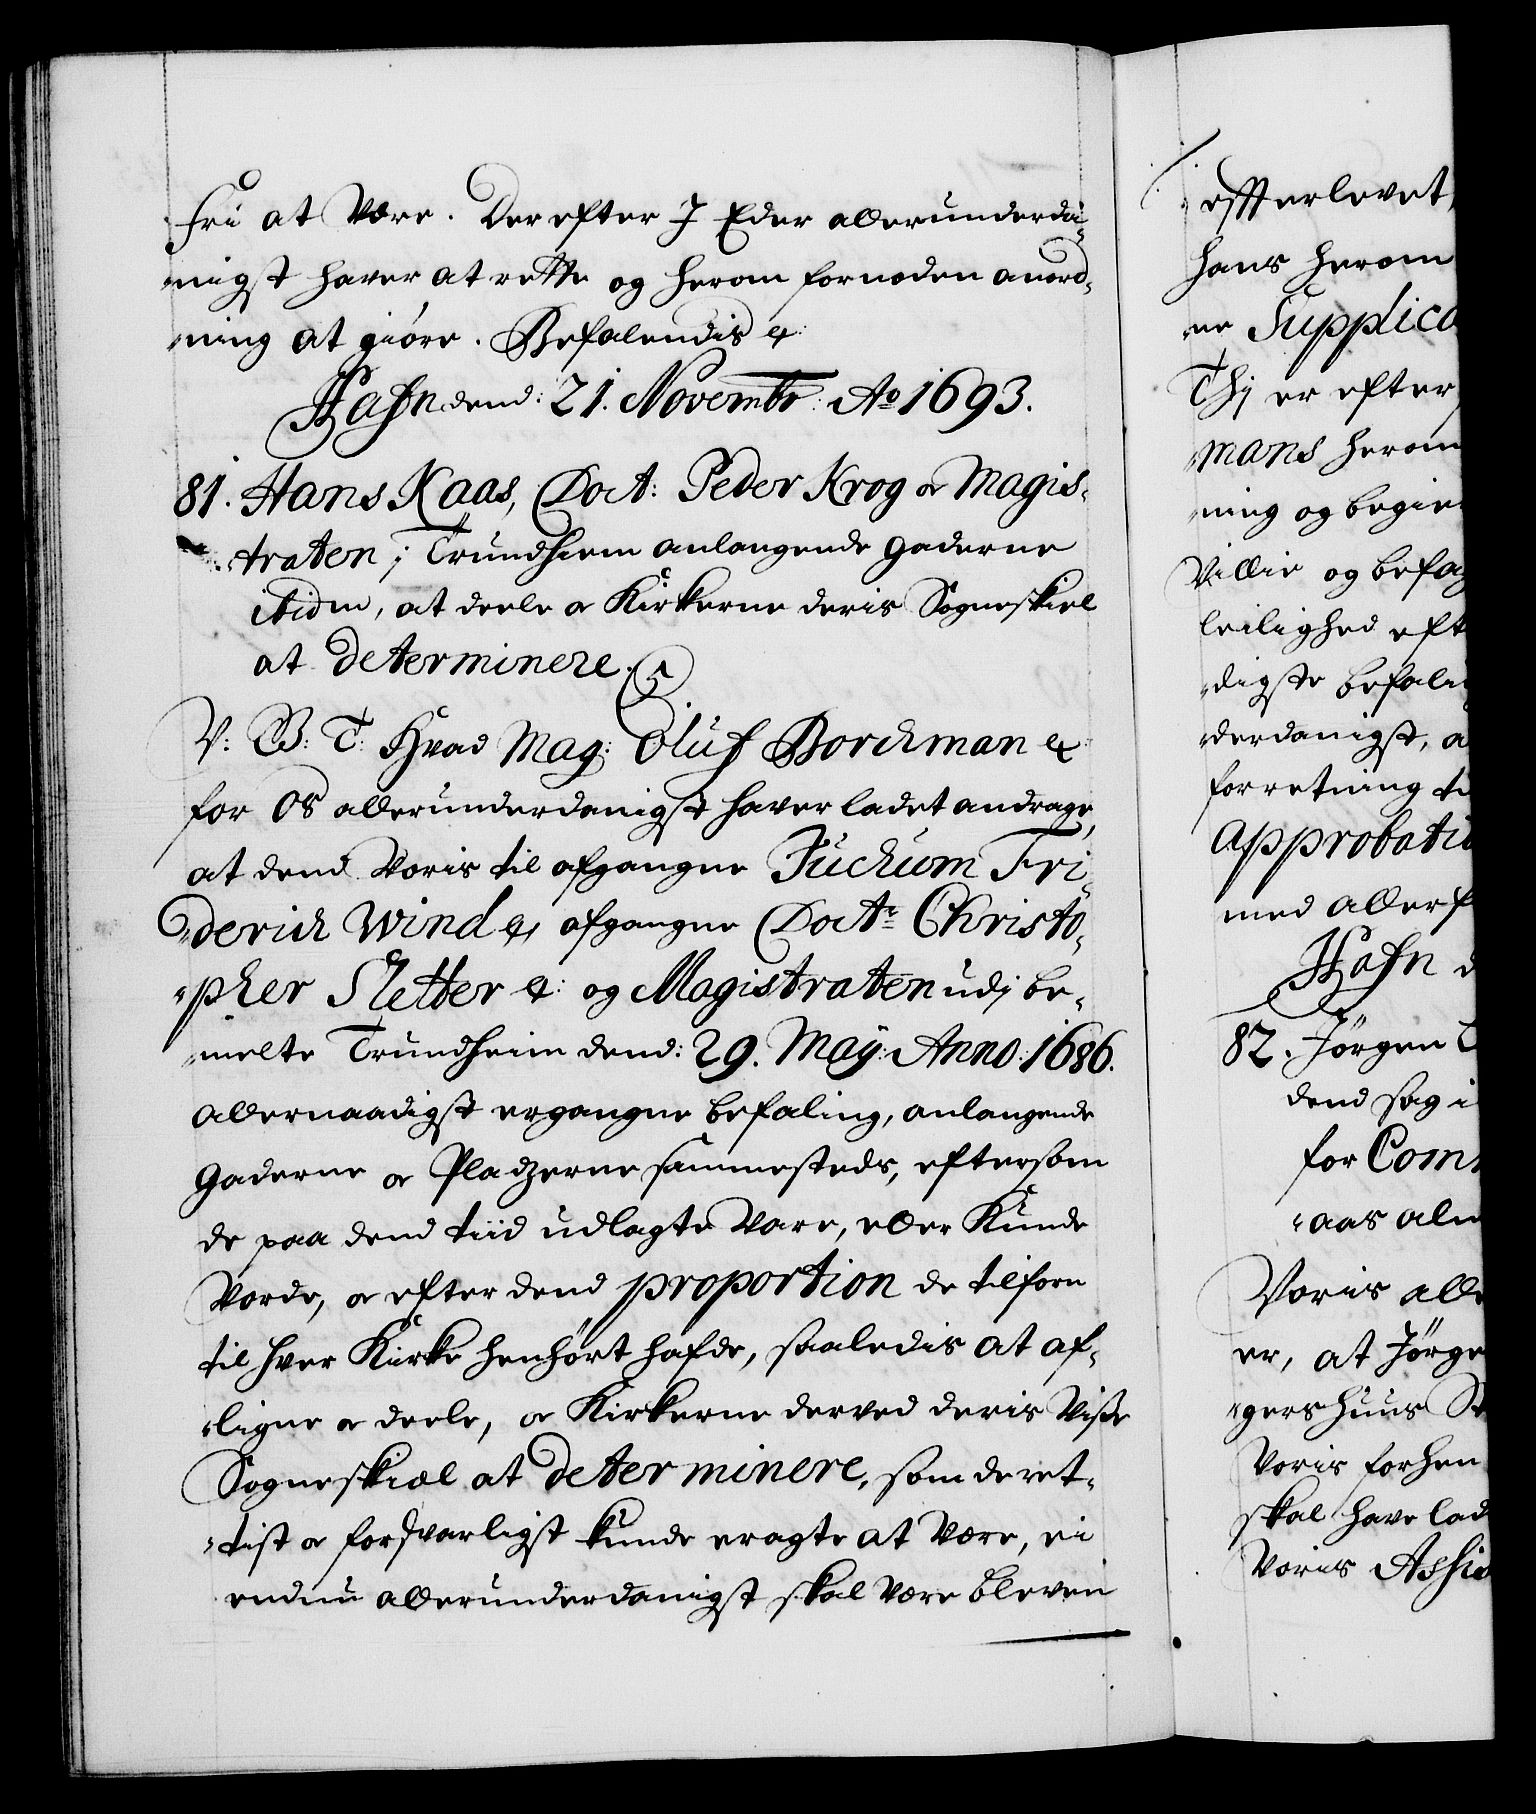 fri at Være. Der efter I Eder allerunderdā-
nigst haver at rette og herom fornøden anord-
ning at giöre. Befalendis &:
Hafn dend: 21. Novembr: Ao 1693.
81. Hans Kaas, Doct: Peder Krog & Magis-
traten j Trundhiem anlangende Gaderne
ibidm, at deele & Kirkerne deris Sogneskiel
at determinere.
V: G: T: Hvad Mag: Oluf Borchman &
for OS allerunderdanigst haver ladet andrage,
at dend Voris til afgangne Juchum Fri-
derich Wind &, afgangne Doctr Christo-
pher Sletter &: og Magistraten udj be-
melte Trundheim dend: 29. Maÿ: Anno: 1686.
allernaadigst ergangne befaling, anlangende
Gaderne & Pladzerne sammesteds, eftersom
de paa dend tiid udlagte Vare, eller Kunde
Vorde, & efter dend proportion de tilforn
til hver Kirke henhört hafde, saaledis at af-
ligne & deele, & Kirkerne derved deris Visse
Sogneskiæl at determinere, som de ret-
tist & forsvarligst kunde eragte at Være, ei
endnu allerunderdanigst skal Være bleven
effterlevet,
hans herom
ne Supplica
Thj er efter
mans herom
ning og begie
Villie og befa
leilighed eft
digste befali
derdanigst, a
forretning ti
approbati
med allerf
Hafn d
82. Jörgen
dend sag i
for Com
aas alm
Voris alle
er, at Jörge
gershuus St
Voris forhen
skal have lad
Voris Assis